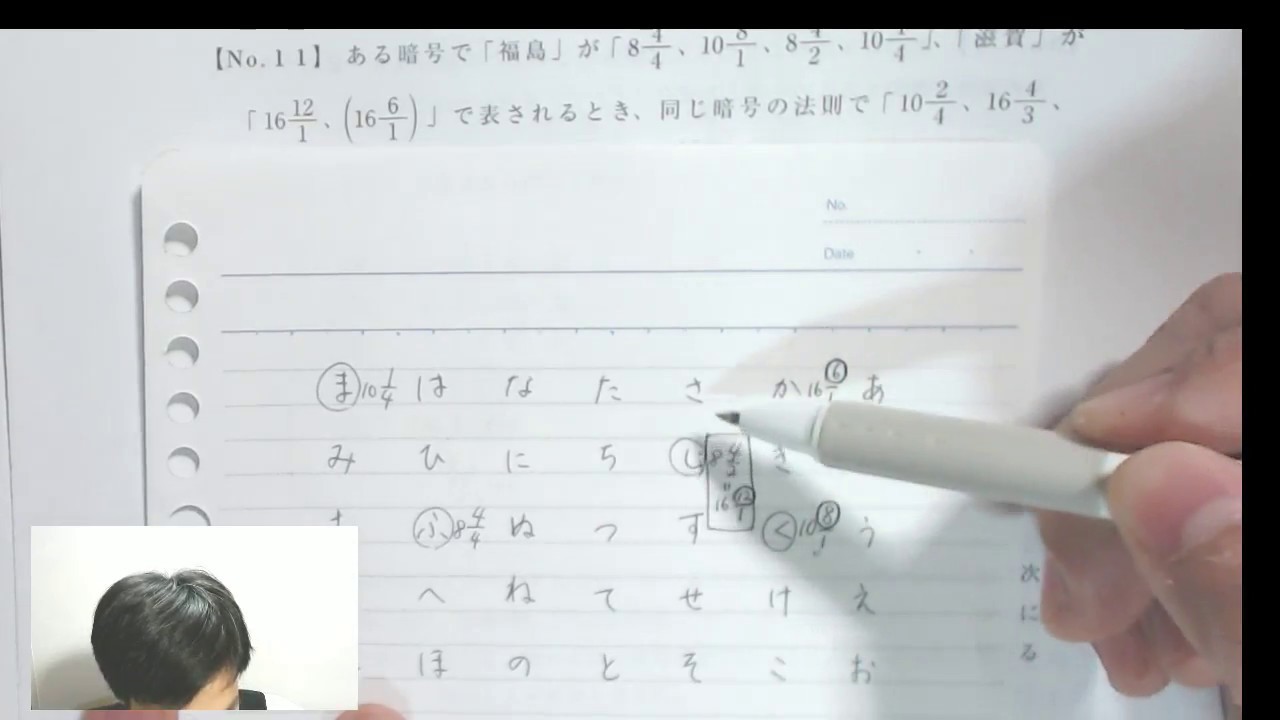 【No.11】 ある暗号で「福島」が「8 4/4、10 8/1、8 4/2、10 1/4」、「滋賀」が
「16 12/1、(16 6/1)」で表されるとき、同じ暗号の法則で「10 2/4、16 4/3、
No.
Date
ま 10 1/4 は な た さ か 16 6/1 あ
み ひ に ち し 8 4/2 き
〃
16 12/1
ふ 8 4/4 ぬ つ す く 10 8/1 う
へ ね て せ け え
ほ の と そ こ お
次
に
る